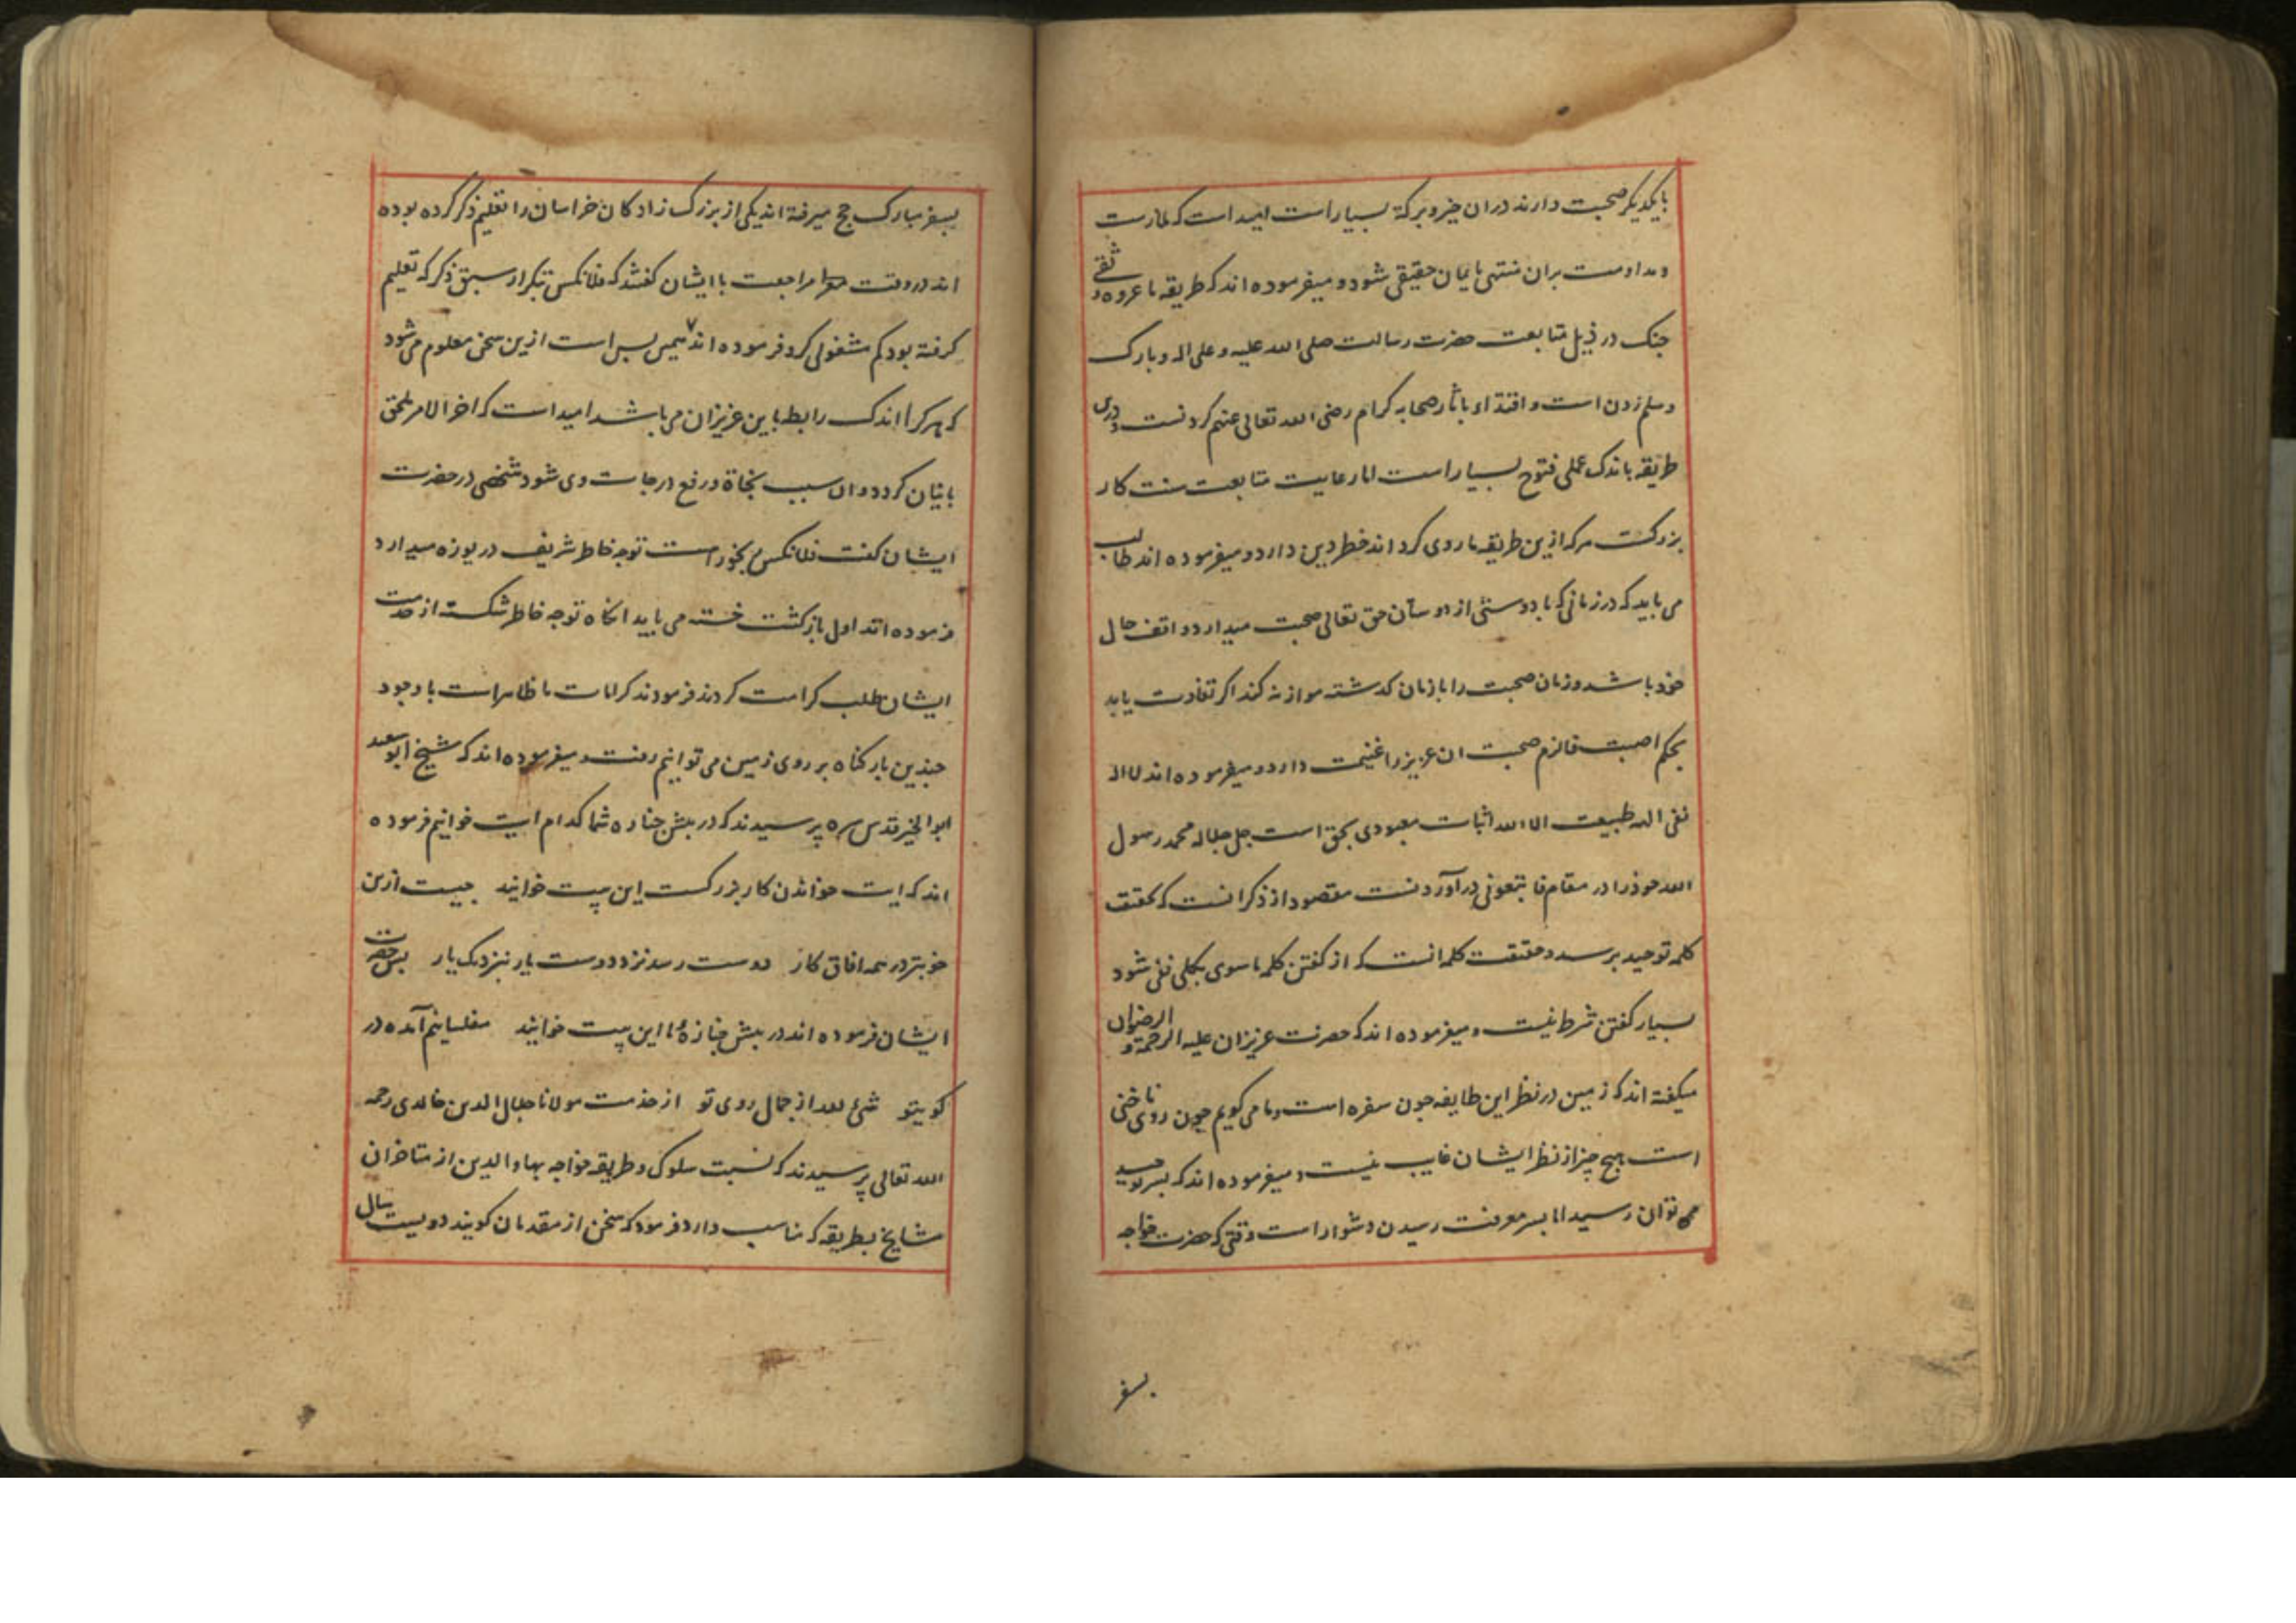 بایکدیکر صحبت دارند دران خیر و برکة بسیار است امید است که ملازمت
و مداومت بران منتهی بایمان حقیقی شود و میفرموده اند که طریقه ما عروه وثقی
چنک در ذیل متابعت حضرت رسالت صلی الله علیه و علی اله و بارک
وسلم زدن است و اقتداء باثار صحابه کرام رضی الله تعالی عنهم کردنست و درین
طریقه باندک عملی فتوح بسیار است اما رعایت متابعت سنت کار
بزرکست هرکه ازین طریقه ما روی کرداند خطر دین دارد و میفرموده اند طالب
می باید که در زمانی که با دوستی از دوستان حق تعالی صحبت میدارد واقف حال
خود باشد و زمان صحبت را با زمان کذشته موازنه کند اکر تفاوت یابد
بحکم اصبت فالزم صحبت ان عزیز را غنیمت دارد و میفرموده اند لا اله
نفی اله طبیعت الا الله اثبات معبودی بحق است جل جلاله محمد رسول
الله خود را در مقام فاتبعونی در آوردنست مقصود از ذکر انست که بحقیقت
کلمه توحید برسد و حقیقت کلمه انست که از کفتن کلمه ماسوی بکلی نفی شود
بسیار کفتن شرط نیست و میفرموده اند که حضرت عزیزان علیه الرحمة و الرضوان
میکفته اند که زمین در نظر این طایفه چون سفره است و ما می کویم چون روی ناخنی
است هیچ چیز از نظر ایشان غایب نیست و میفرموده اند که بسر توحید
می توان رسید اما بسر معرفت رسیدن دشوار است وقتی که حضرت خواجه
بسفر
بسفر مبارک حج میرفته اند یکی از بزرک زادکان خراسان را تعلیم ذکر کرده بوده
اند در وقت مراجعت با ایشان کفتند که فلانکس بتکرار سبق ذکر که تعلیم
کرفته بود کم مشغولی کرد فرموده اند همین بس است ازین سخن معلوم می شود
که هرکرا اندک رابطه باین عزیزان می باشد امید است که اخر الامر ملحق
باینان کردد و ان سبب نجاة و رفع درجات وی شود شخصی در حضرت
ایشان کفت فلانکس رنجور است توجه خاطر شریف در یوزه میدارد
فرموده اند اول بازکشت خسته می باید انکاه توجه خاطر شکسته از خدمت
ایشان طلب کرامت کردند فرمودند کرامات ما ظاهر است با وجود
چندین بار کناه بر روی زمین می توانیم رفت و میفرموده اند که شیخ ابو سعید
ابو الخیر قدس سره پرسیدند که در پیش جنازه شما کدام ایت خوانیم فرموده
اند که ایت خواندن کار بزرکست این بیت خوانید چیست ازین
خوبتر در همه افاق کار دوست رسد نزد دوست یار بنزدیک یار پس حضرت
ایشان فرموده اند در پیش جنازه ما این بیت خوانید مفلسانیم آمده در
کوی تو شئ لله از جمال روی تو از خدمت مولانا جلال الدین خالدی رحمه
الله تعالی پرسیدند که نسبت سلوک و طریقه خواجه بهاء الدین از متاخران
مشایخ بطریقه که مناسب دارد فرمود که سخن از متقدمان کویند دویست سال